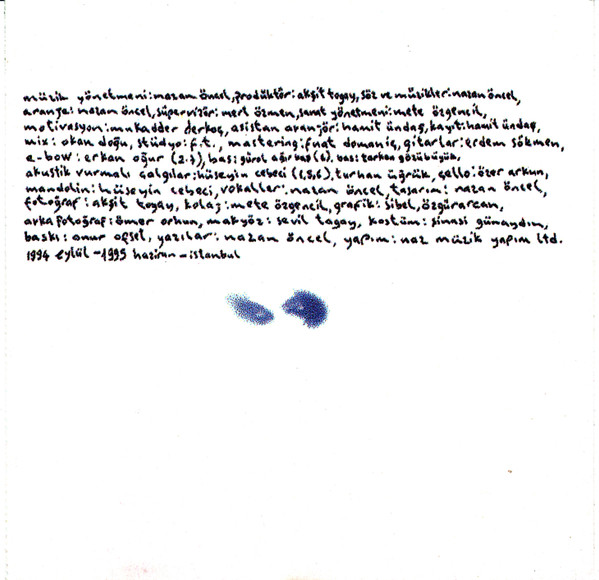 müzik yönetmeni:nazan öncel,prodüktör:akşit togay,söz ve müzikler:nazan öncel,
aranje: nazan öncel,süpervizör: mert özmen,sanat yönetmeni:mete özgencil,
motivasyon:mukadder derkoç, asistan aranjör:hamit ündaş,kayıt:hamit ündaş,
mix: okan doğu, stüdyo:f.t., mastering:fuat domaniç, gitarlar:erdem sökmen,
e-bow: erkan oğur (2.7), bas: gürol ağırbaş (6). bas: serkan gözübüyük,
akustik vurmalı çalgılar:hüseyin cebeci (1,5,6).turhan üğrük, çello:özer arkun,
mandolin: hüseyin cebeci, vokaller: nazan öncel, tasarım: nazan öncel,
fotoğraf: akşit togay, kolaj: mete özgencil, grafik: sibel, özgürarcan,
arka fotoğraf:ömer orhun, makyöz: sevil togay, kostüm: şinasi günaydın,
baskı: onur ofset, yazılar: nazan öncel, yapım: naz müzik yapım ltd.
1994 eylül -1995 haziran -istanbul